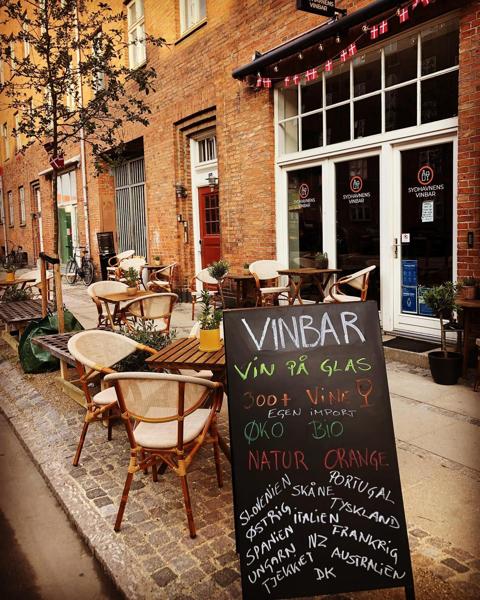 SYDHAVNENS
VINBAR
SYDHAVNENS
VINBAR
SYDHAVNENS
VINBAR
SYDHAVNENS
VINBAR
VINBAR
VIN PÅ GLAS
300+ VINE
EGEN IMPORT
ØKO BIO
NATUR ORANGE
SLOVENIEN SKÅNE PORTUGAL
ØSTRIG ITALIEN TYSKLAND
SPANIEN NZ FRANKRIG
UNGARN AUSTRALIEN
TJEKKIET DK